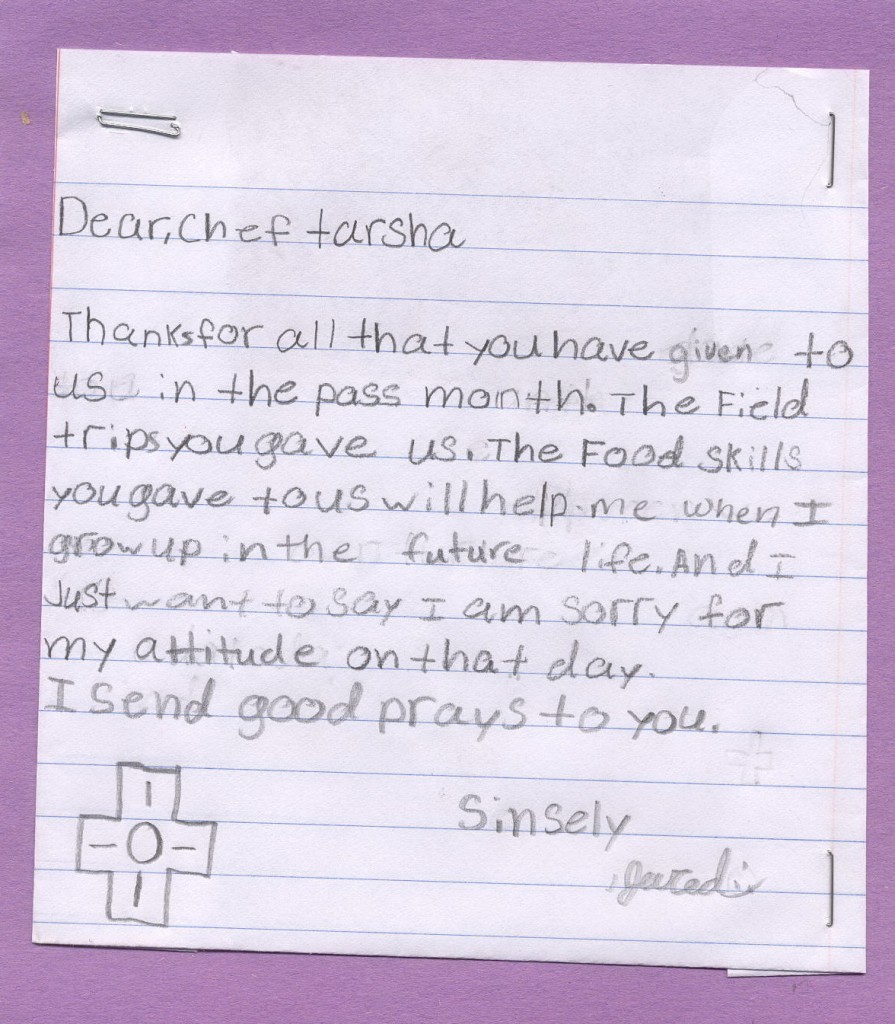 Dear, Chef tarsha
Thanks for all that you have given to
us in the pass month. The Field
trips you gave us. The Food skills
you gave to us will help me when I
grow up in the future life. And I
Just want to say I am sorry for
my attitude on that day.
I send good prays to you.
Sinsely
Jared